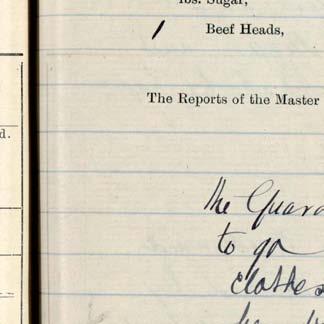 lbs. Sugar,
Beef Heads,
The Reports of the Master
d.
the Guard
to go
clothes